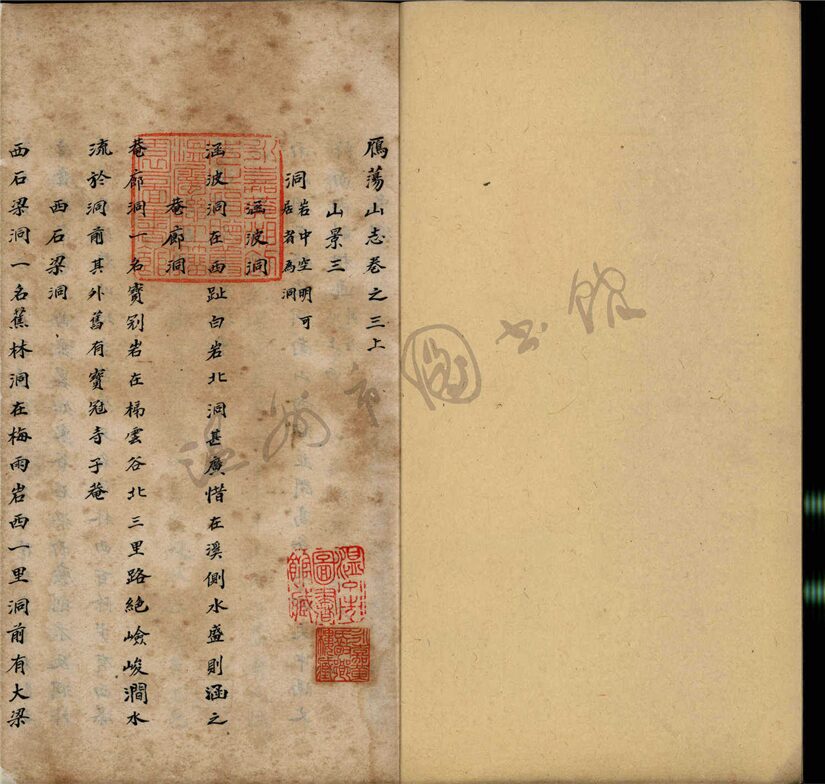 雁蕩山志卷之三上
山景三
洞 岩中空明可居者為洞
涵波洞
涵波洞在西趾白岩北洞甚廣惜在溪側水盛則涵之
菴廊洞
菴廊洞一名寳剎岩在掃雲谷北三里路絶嶮峻澗水
流於洞前其外舊有寳冠寺子菴
西石梁洞
西石梁洞一名蕉林洞在梅雨岩西一里洞前有大梁
温州市圖書館藏
温州市图书馆